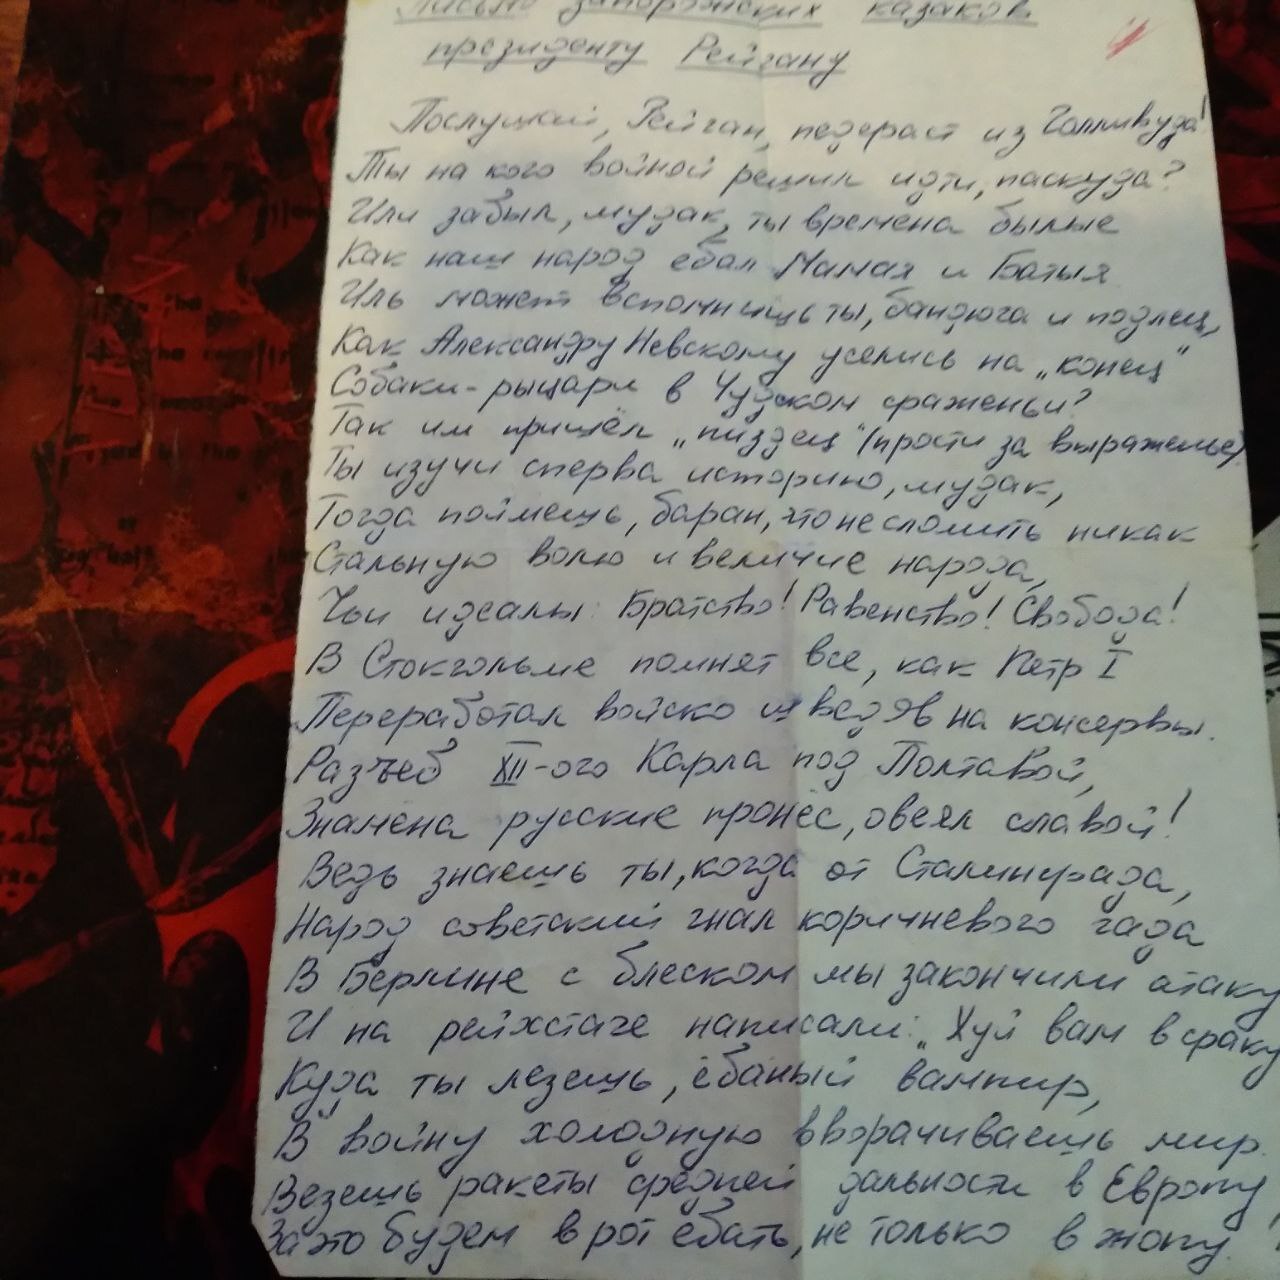 Письмо запорожских казаков
президенту Рейгану
Послушай, Рейган, педераст из Голливуда!
Ты на кого войной решил идти, паскуда?
Или забыл, мудак, ты времена былые
Как наш народ ебал Мамая и Батыя
Иль может вспомнишь ты, бандюга и подлец,
Как Александру Невскому уселись на „конец"
Собаки-рыцари в Чудском сраженьи?
Так им пришёл „пиздец" (прости за выраженье)
Ты изучи сперва историю, мудак,
Тогда поймешь, баран, что не сломить никак
Стальную волю и величие народа,
Чьи идеалы: Братство! Равенство! Свобода!
В Стокгольме помнят все, как Петр I
Переработал войско шведов на консервы.
Разъеб XII-ого Карла под Полтавой,
Знамена русские пронёс, овеял славой!
Ведь знаешь ты, когда от Сталинграда,
Народ советский гнал коричневого гада
В Берлине с блеском мы закончили атаку
И на рейхстаге написали: „Хуй вам в сраку
Куда ты лезешь, ёбаный вампир,
В войну холодную вворачиваешь мир.
Везешь ракеты средней дальности в Европу,
За это будем в рот ебать, не только в жопу.